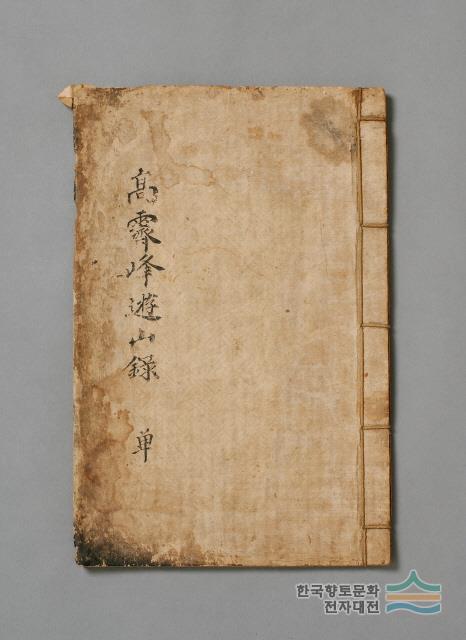 高霽峰遊山錄 单
한국향토문화
전자대전